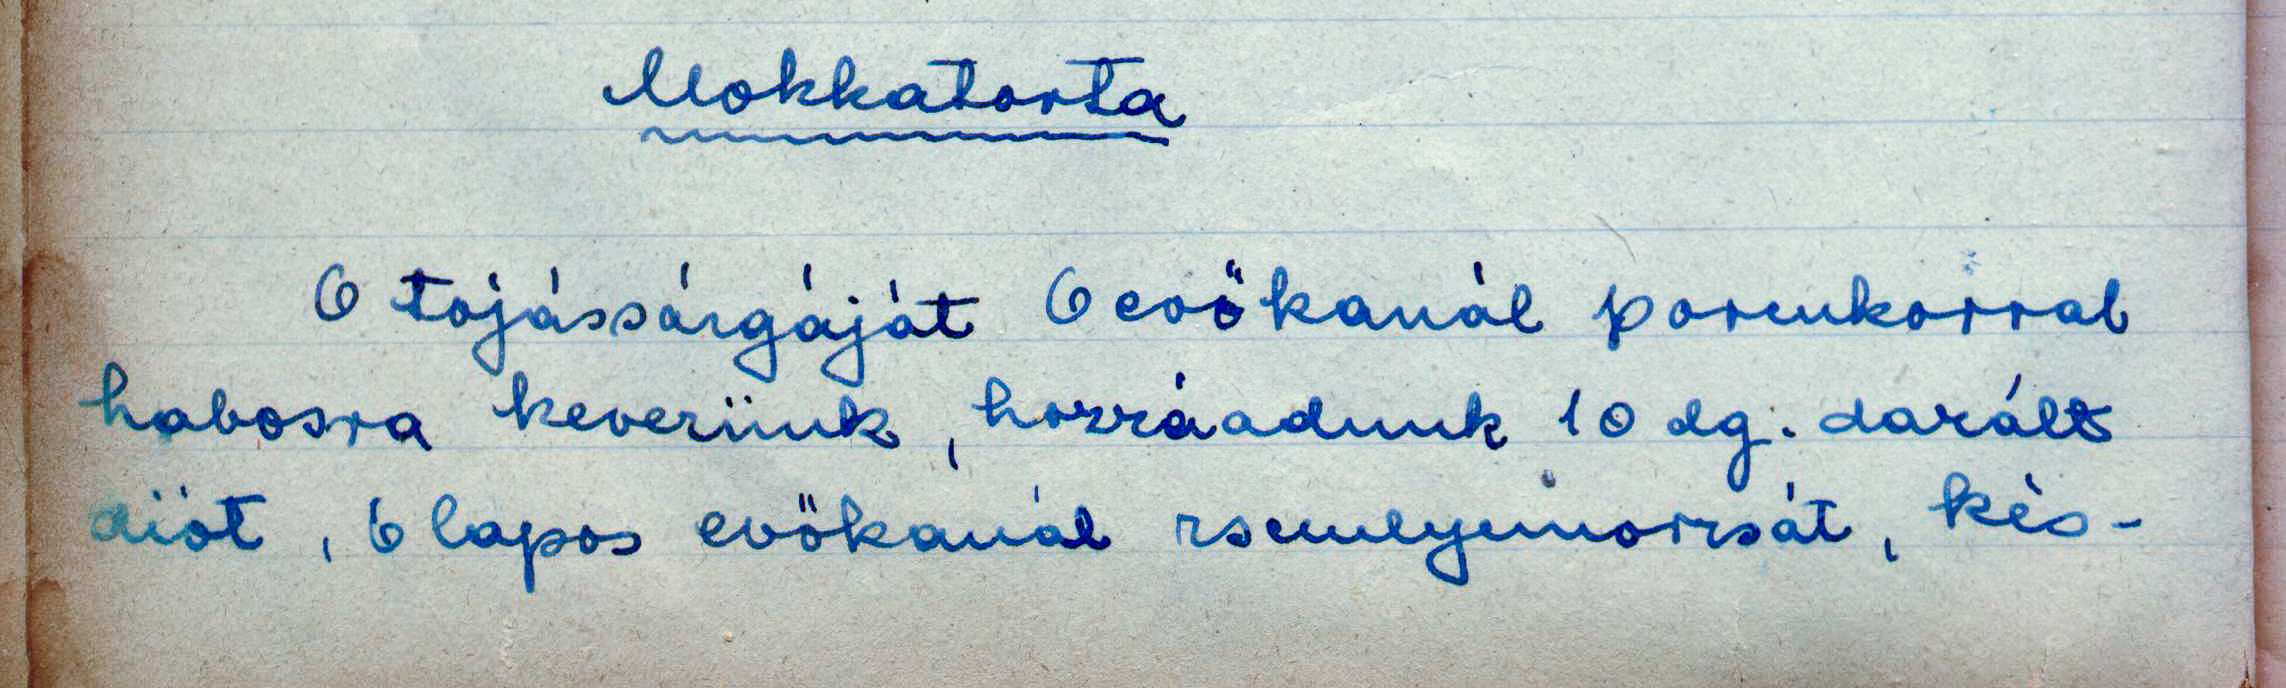 Mokkatorta
6 tojássárgáját 6 evőkanál porcukorral
habosra keverünk, hozzáadunk 10 dg. darált
diót, 6 lapos evőkanál zsemlyemorzsát, kés-